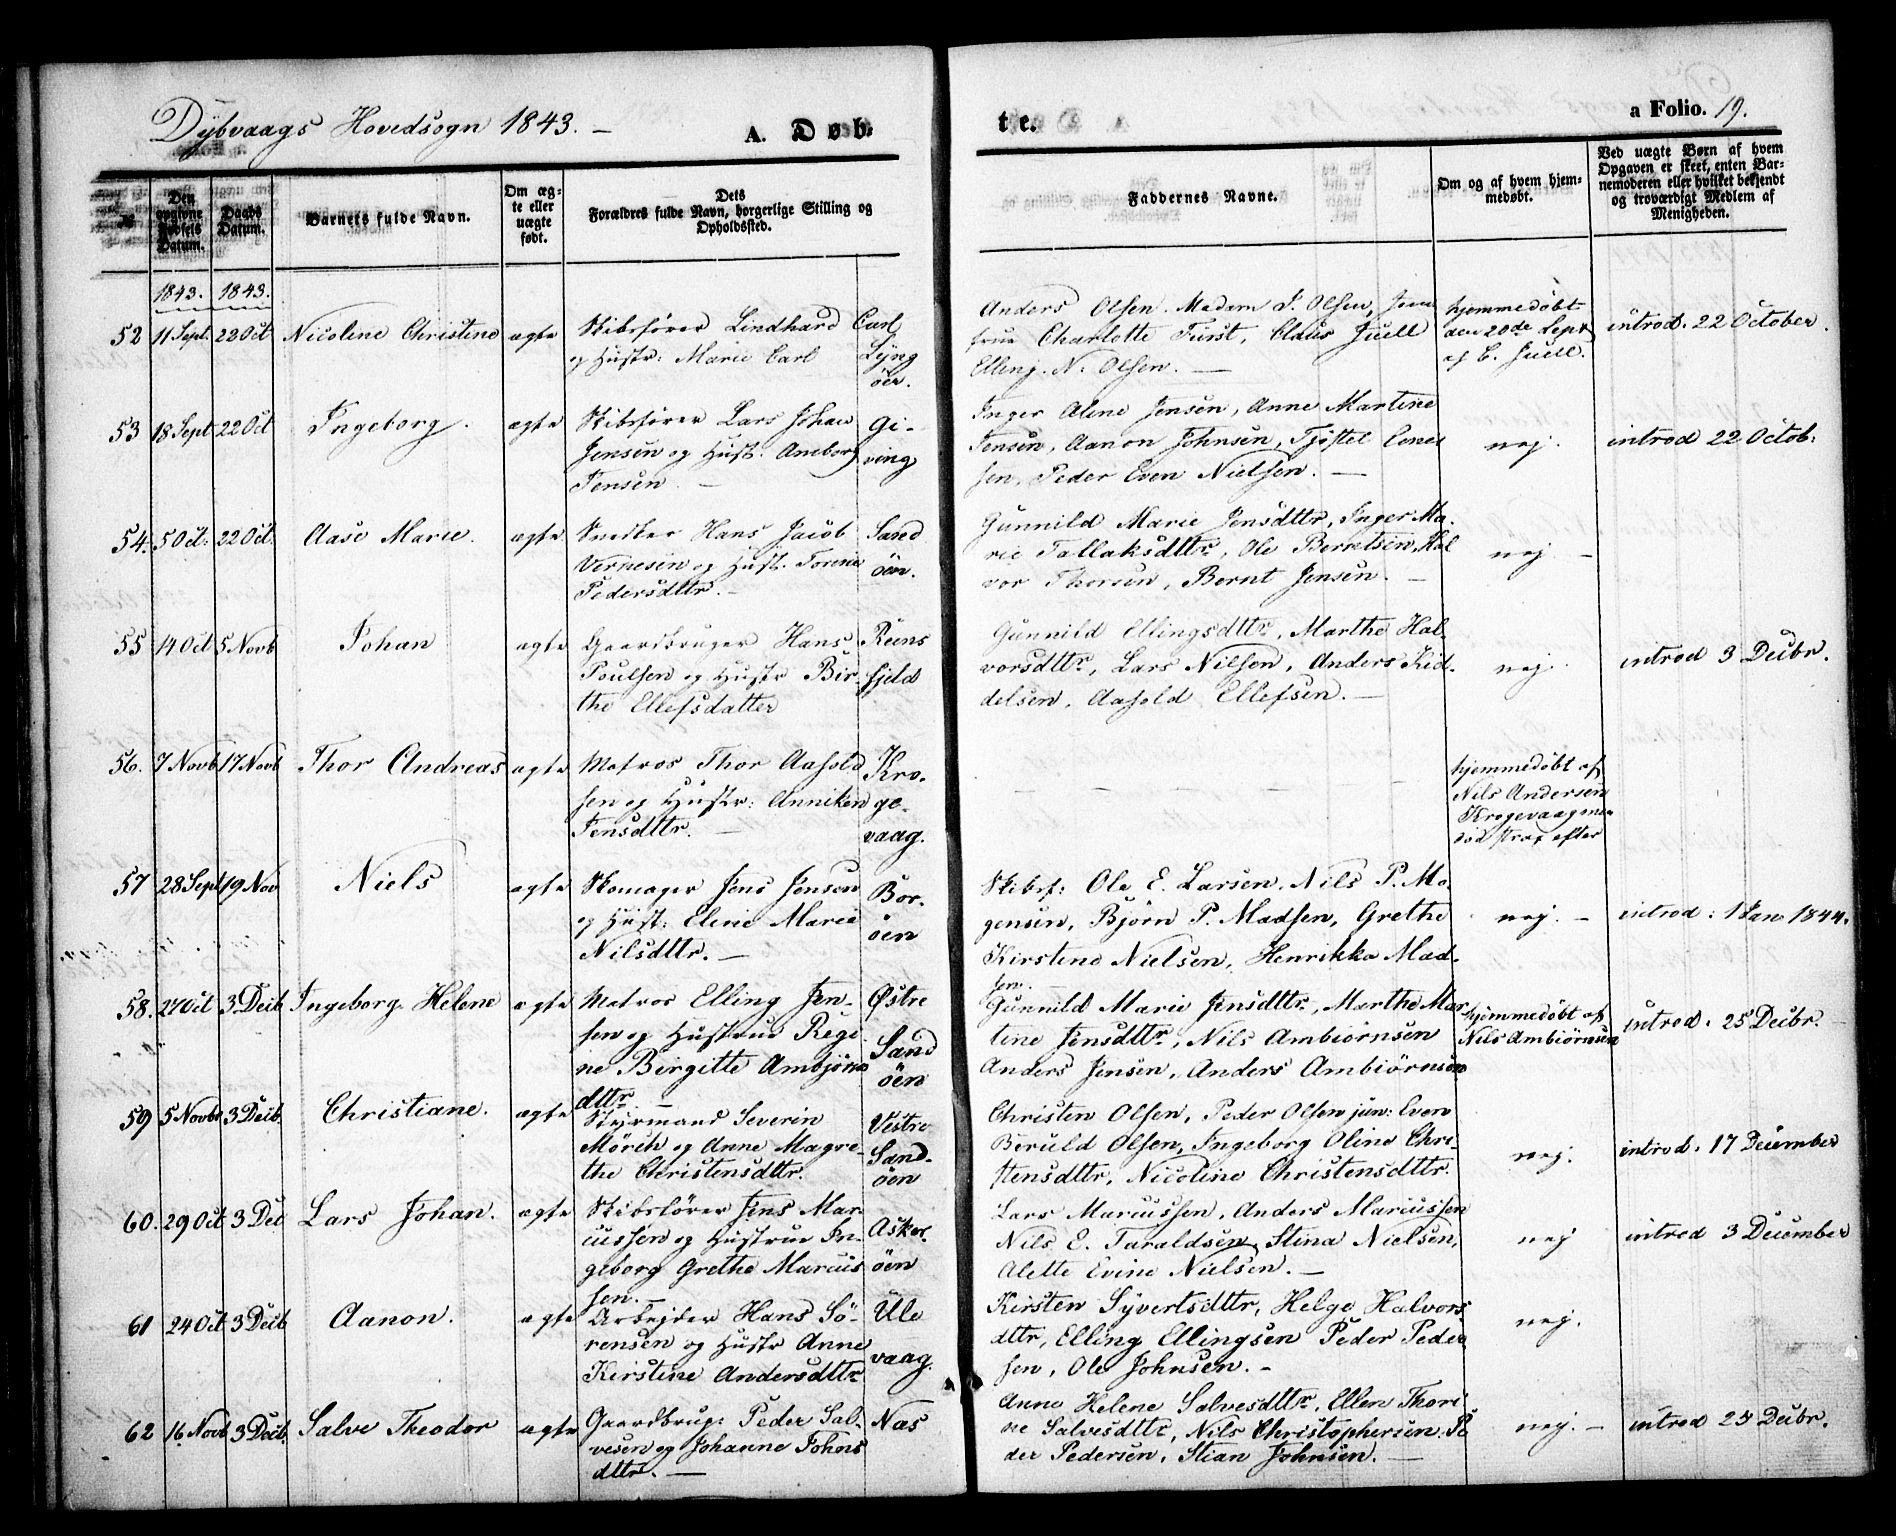 Dybvaags Hovedsogn 1843. –
A. Døb-
te.
a Folio. 19.
№
Den opgivne Fødsels Datum.
Daabs Datum.
Barnets fulde Navn.
Om ægte eller uægte født.
Dets
Forældres fulde Navn, borgerlige Stilling og
Opholdssted.
Faddernes Navne.
Om og af hvem hjem-
medøbt.
Ved uægte Børn af hvem
Opgaven er skeet, enten Bar-
nemoderen eller hvilket bekjendt
og troværdigt Medlem af
Menigheden.
1843. 1843.
52 11 Sept. 22 Oct Nicoline Christine ægte
Skibsfører Lindhard Carl
og Hustr: Marie Carl
Lyng
öen.
Anders Olsen. Madem J. Olsen, Jom
frue Charlotte Fürst, Claus Juell
Elling. N. Olsen. –
hjemmedøbt
den 20de Sept
af C. Juell.
introd. 22 October.
53 18 Sept 22 Oct Ingeborg. ægte
Skibsfører Lars Johan
Jensen og Hust. Amborg
Jensen. –
Gi-
ving
Inger Aline Jensen, Anne Martine
Jensen, Aanon Johnsen, Tjöstel Even
sen, Peder Even Nielsen. –
nej.
introd 22 Octob:
54. 5 Oct. 22 Oct. Aase Marie. ægte
Snedker Hans Jacob
Vernesen og Hust. Torine
Pedersdttr. –
Sand
öen.
Gunnild Marie Jensdttr, Inger Ma-
rie Tallaksdttr, Ole Berntsen, Hal
vor Thorsen, Bernt Jensen. –
nej –
55 14 Oct 5 Novb Johan ægte
Gaardbruger Hans
Poulsen og Hustr Bir-
the Ellefsdatter
Reens
fjeld
Gunnild Ellingsdttr, Marthe Hal
vorsdttr, Lars Nilsen, Anders Kid-
delsen, Aasold Ellefsen. –
nej.
introd 3 Decbr.
56. 7 Novb 17 Novb Thor Andreas ægte
Matros Thor Aasold
sen og Hustr: Anniken
Jensdttr. –
Kro-
ge-
vaag.
hjemmedøbt af
Nils Andersen
Krogevaag men
död strax efter
57 28 Sept 19 Nov Niels ægte
Skomager Jens Jensen
og Hust: Eline Marie
Nilsdttr. –
Bor-
öen
Skibsf: Ole E. Larsen, Nils P. Mo-
gensen, Björn P. Madsen, Grethe
Kirstine Nielsen, Henrikka Mad-
sen.
nej. –
introd: 1 Jan 1844.
58. 27 Oct 3 Decb Ingeborg Helene ægte
Matros Elling Jen-
sen og Hustrue Regi
ne Birgitte Ambjöns
dttr –
Østre
Sand
öen
Gunnild Marie Jensdttr, Marthe Mar
tine Jensdttr, Nils Ambiörnsen
Anders Jensen, Anders Ambiörnsen
hjemmedøbt af
Nils Ambiörnsen
introd. 25 Decbr.
59 5 Novbr 3 Decb. Christiane. ægte
Styrmand Severin
Mörch og Anne Magre-
the Christensdttr.
Vestre
Sand-
öen
Christen Olsen, Peder Olsen jun: Even
Beruld Olsen, Ingeborg Oline Chri-
stensdttr, Nicoline Christensdttr.
nej.
introd. 17 December
60. 29 Oct 3 Dec Lars Johan. ægte
Skibsfører Jens Mar
cussen og Hustrue In-
geborg Grethe Marcus
sen. –
Asker-
öen
Lars Marcussen, Anders Marcussen
Nils E. Taraldsen, Stina Nielsen,
Alette Evine Nielsen. –
nej
introd 3 December
61 24 Oct 3 Decb Aanon. ægte
Arbejder Hans Sö-
rensen og Hustr Anne
Kirstine Andersdttr
Ule
vaag.
Kirsten Syvertsdttr, Helge Halvors
dttr, Elling Ellingsen Peder Peder
sen, Ole Johnsen. –
nej.
62 16 Novb 3 Decb. Salve Theodor ægte
Gaardbrug: Peder Sal-
vesen og Johanne Johns
dttr. –
Næs
Anne Helene Salvesdttr, Ellen Thori
ne Salvesdttr, Nils Christophersen, Pe
der Pedersen, Stian Johnsen. –
nej. –
introd 25 Decbr.